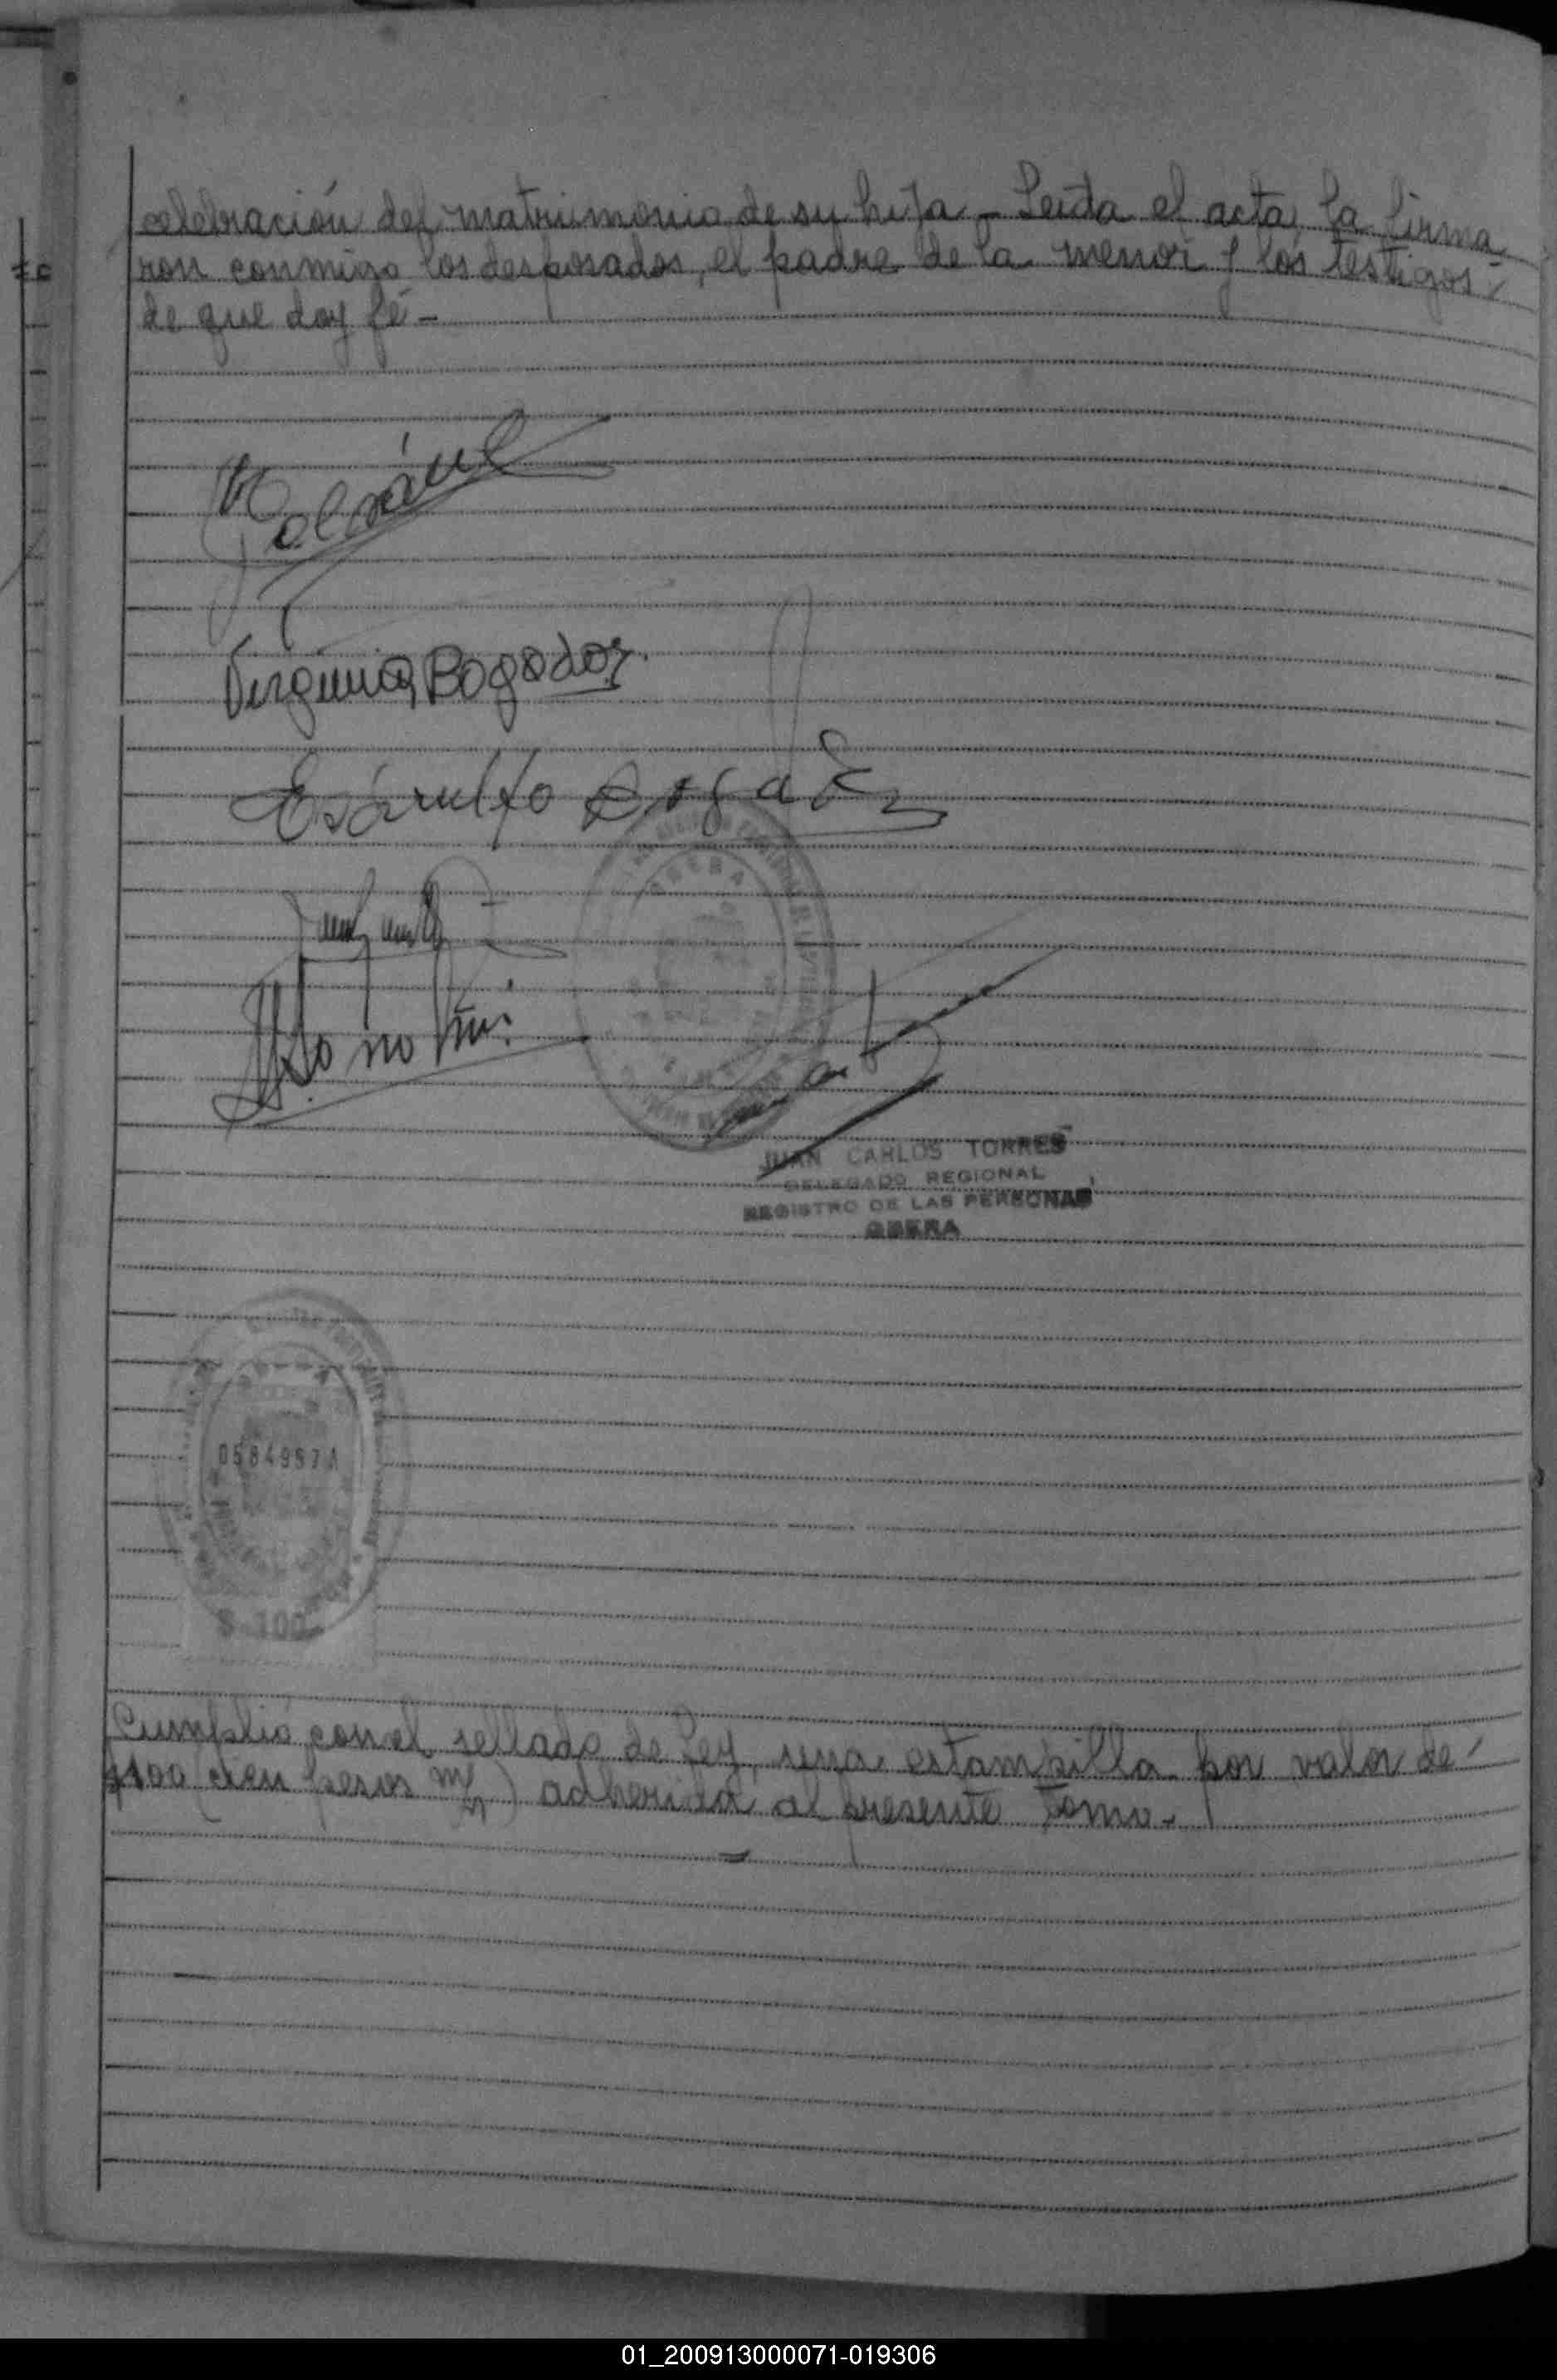 celebración del matrimonio de su hija - Leída el acta, la firma
ron conmigo los desposados, el padre de la menor y los testigos:
de que doy fé -
Virginia Bogado
JUAN CARLOS TORRES
DELEGADO REGIONAL
REGISTRO DE LAS PERSONAS
OBERA
0584957A
$ 100
Cumplió con el sellado de Ley, una estampilla por valor de
$100 (cien pesos m/n) adherida al presente Tomo.-
01_200913000071-019306